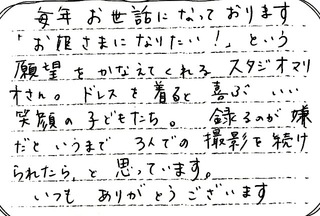 毎年お世話になっております
「お姫さまになりたい!」という
願望をかなえてくれるスタジオマリ
オさん。ドレスを着ると喜ぶいい
笑顔の子どもたち。録るのが嫌
だというまで3人での撮影を続け
られたら、と思っています。
いつもありがとうございます